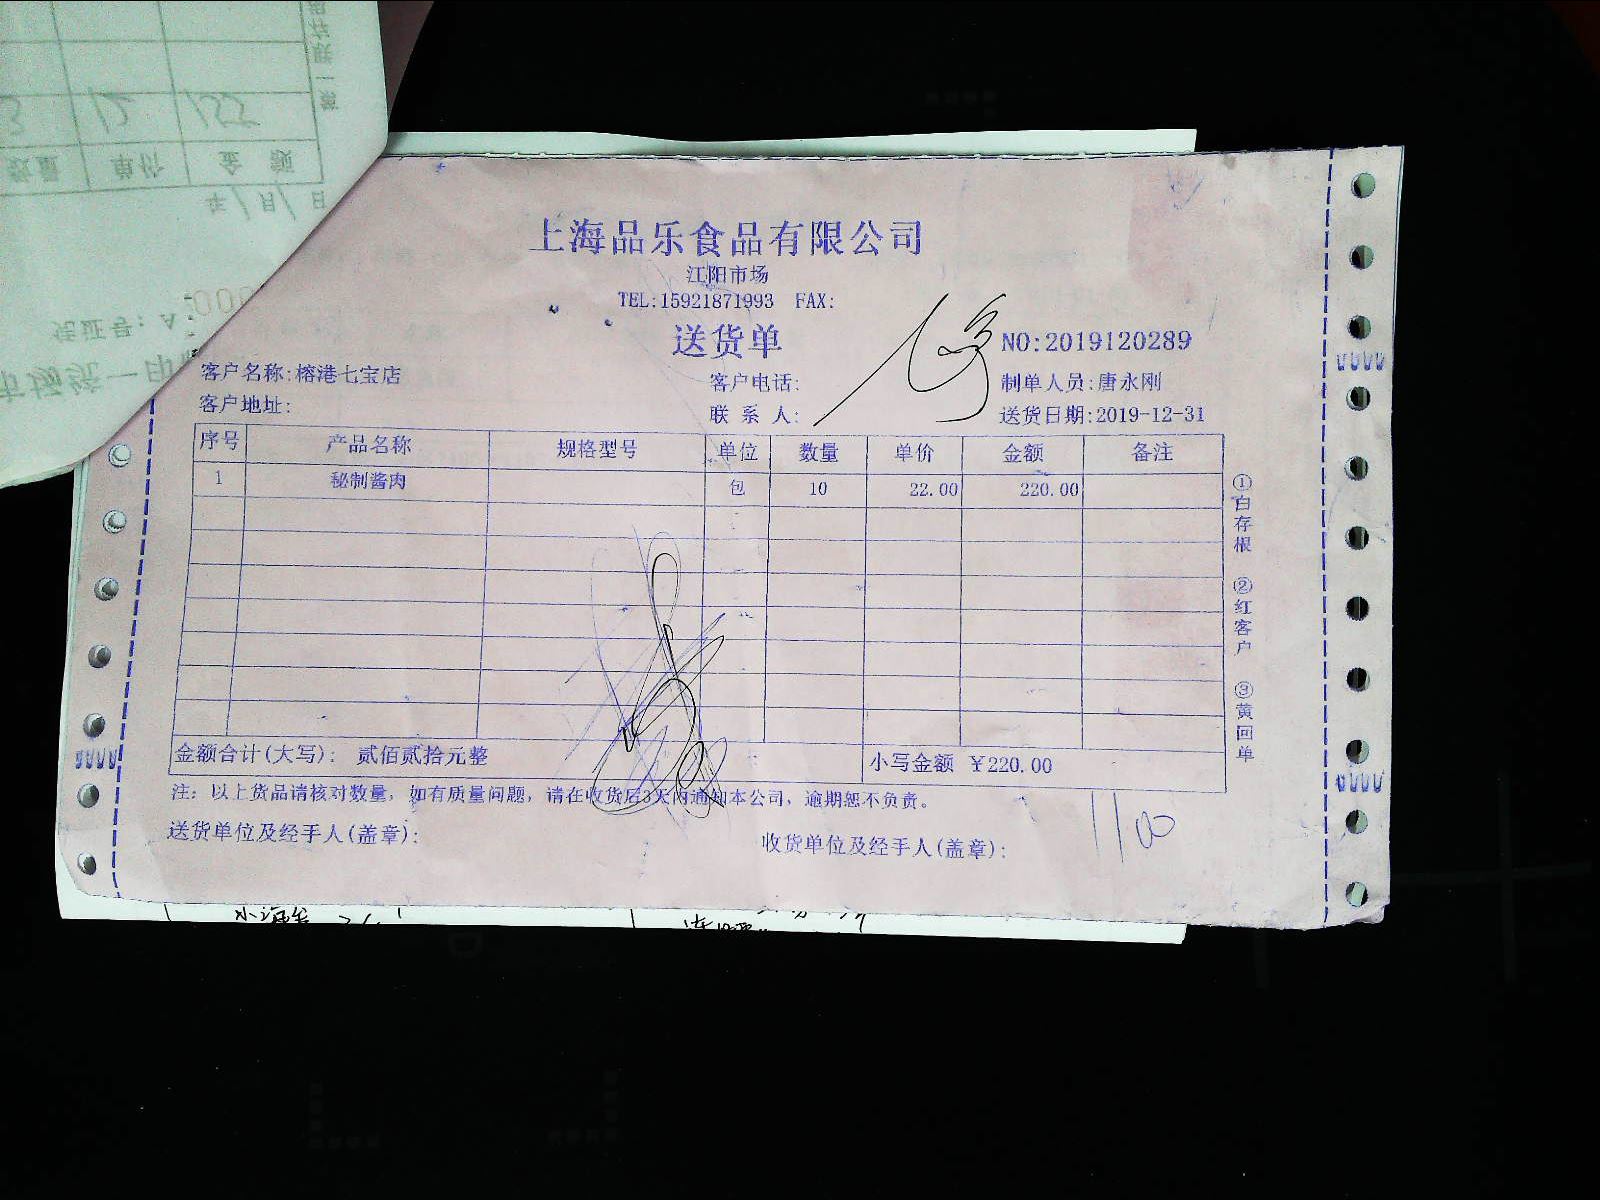 上海品乐食品有限公司
江阳市场
TEL:15921871993 FAX:
送货单
NO:2019120289
客户名称:榕港七宝店
客户电话:
制单人员:唐永刚
客户地址:
联 系 人:
送货日期:2019-12-31
序号 产品名称 规格型号 单位 数量 单价 金额 备注
1 秘制酱肉 包 10 22.00 220.00
金额合计(大写): 贰佰贰拾元整 小写金额 ¥220.00
注: 以上货品请核对数量, 如有质量问题, 请在收货后3天内通知本公司, 逾期恕不负责。
送货单位及经手人(盖章):
收货单位及经手人(盖章):
①白存根 ②红客户 ③黄回单
1100
数量 单价 金 额
12 155
年1月1日
凭证号: A